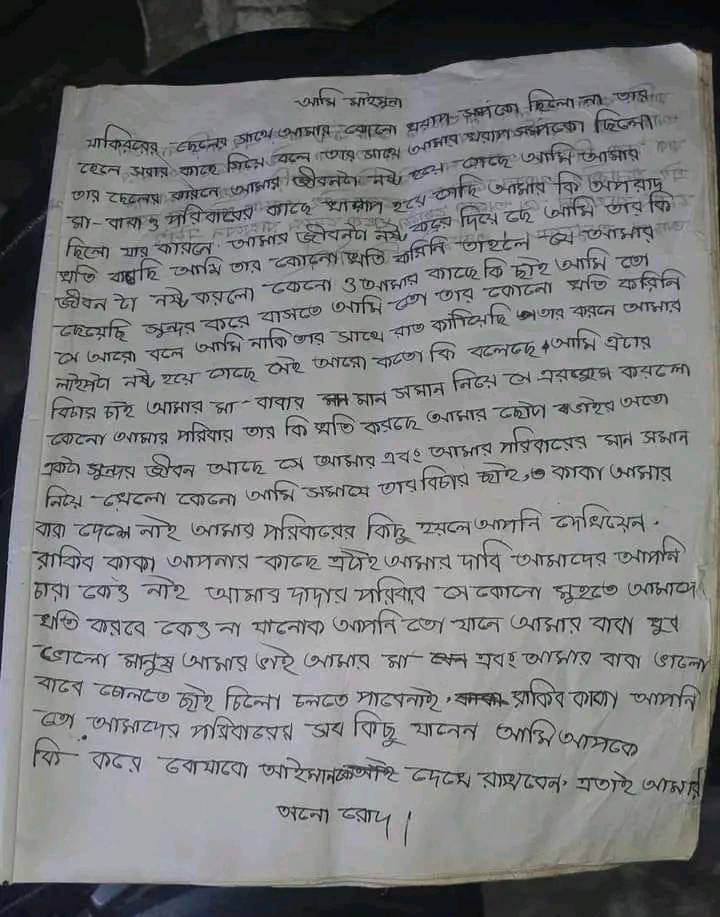 আমি মাইমুনা
যাকিররের ছেলের সাথে আমার কোনো খারাপ সম্পকো ছিলো না তার
ছেলে সবার কাছে গিয়ে বলে তার সাথে আমার খারাপ সম্পকো ছিলো
তার ছেলের কারনে আমার জীবনটা নষ্ট হয়ে গেছে আমি আমার
মা-বাবা ও পরিবারের কাছে খারাপ হয়ে গেছি আমার কি অপরাদ
ছিলো যার কারনে আমার জীবনটা নষ্ট করে দিয়ে ছে আমি তার কি
খতি করছি আমি তার কোনো খতি করিনি তাহলে সে আমার
জীবন টা নষ্ট করলো কেনো ও আমার কাছে কি ছাই আমি তো
ছেয়েছি সুন্দর করে বাসতে আমি তো তার কোনো খতি করিনি
সে আরো বলে আমি নাকি তার সাথে রাত কাটিয়েছি তার করনে আমার
লাইপটা নষ্ট হয়ে গেছে সেই আরো কতো কি বলেছে আমি এটার
বিচার চাই আমার মা-বাবার মান সমান নিয়ে সে এরখম করলো
কেনো আমার পরিবার তার কি খতি করছে আমার ছোটা ভাইর অতো
একটা সুন্দর জীবন আছে সে আমার এবং আমার পরিবারের মান সমান
নিয়ে খেলো কেনো আমি সমাযে তার বিচার ছাই, ও কাকা আমার
বাবা দেশে নাই আমার পরিবারের কিছু হয়লে আপনি দেখিয়েন.
রাকিব কাকা আপনার কাছে এটাই আমার দাবি আমাদের আপনি
চারা কেও নাই আমার দাদার পরিবার সে কোনো মুহুতে আমাদের
খতি করবে কেও না যানোক আপনি তো যানে আমার বাবা খুব
ভালো মানুষ আমার ভাই আমার মা এবং আমার বাবা ভালো
বাবে চোলতে ছাই চিলো চলতে পাবেনাই. রাকিব কাকা আপনি
তো আমাদের পরিবারের সব কিছু যানেন আমি আপকে
কি করে বোযাবো আইমানকে দেখে রাখবেন. এতাই আমার
অনো রোদ।